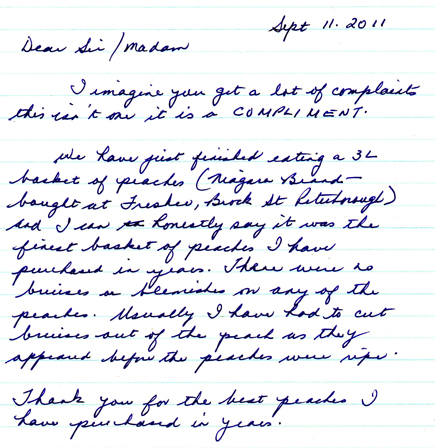 Sept 11. 2011
Dear Sir/Madam
I imagine you get a lot of complaints
this isn't one it is a COMPLIMENT.
We have just finished eating a 3L
basket of peaches (Niagara Brand -
bought at Freshco, Brock St Peterborough)
and I can honestly say it was the
finest basket of peaches I have
purchased in years. There were no
bruises or blemishes on any of the
peaches. Usually I have had to cut
bruises out of the peach as they
appeared before the peaches were ripe.
Thank you for the best peaches I
have purchased in years.